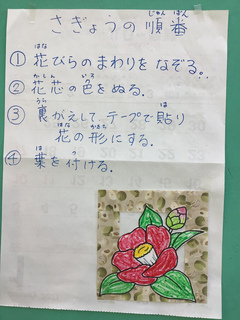 さぎょうの順番
じゅん ばん
① 花びらのまわりを なぞる。
はな
② 花芯の色をぬる。
かしん いろ
③ 裏がえして、テープで貼り
うら は
花の形にする。
はな かたち
④ 葉を付ける。
は つ